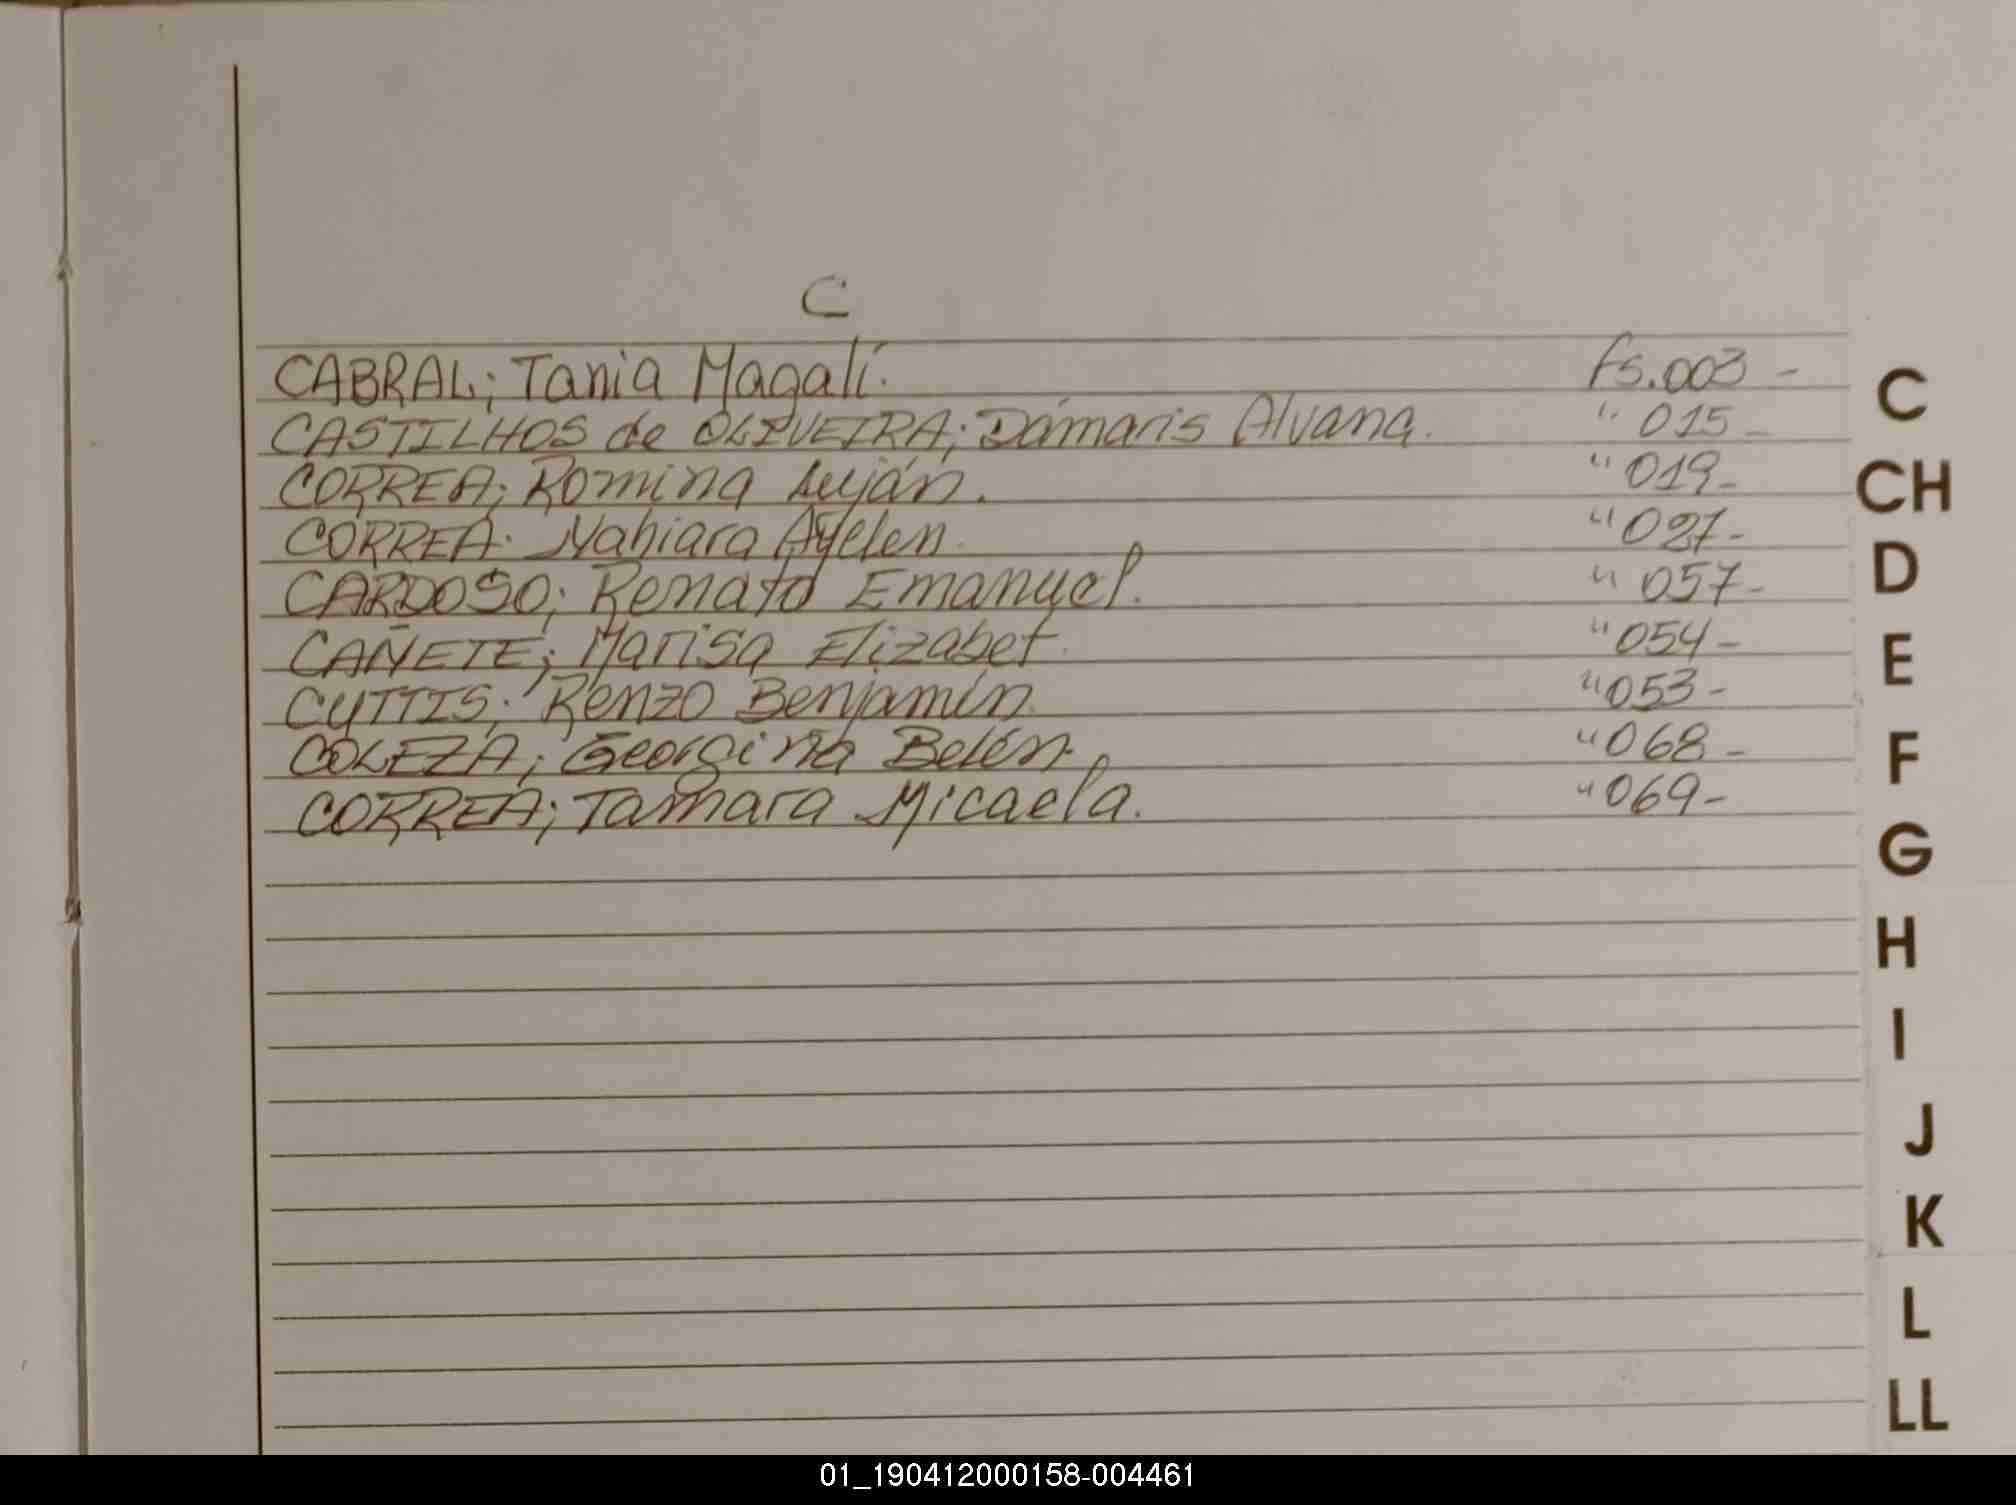 C
CABRAL; Tania Magalí. fs. 003-
CASTILHOS de OLIVEIRA; Dámaris Alvana. " 015-
CORREA; Romina Luján. " 019-
CORREA. Nahiara Ayelen. " 027-
CARDOSO; Renato Emanuel. " 057-
CAÑETE; Marisa Elizabet. " 054-
CUTTIS; Renzo Benjamín. " 053-
COLEZA; Georgina Belén. " 068-
CORREA; Tamara Micaela. " 069-
C
CH
D
E
F
G
H
I
J
K
L
LL
01_190412000158-004461